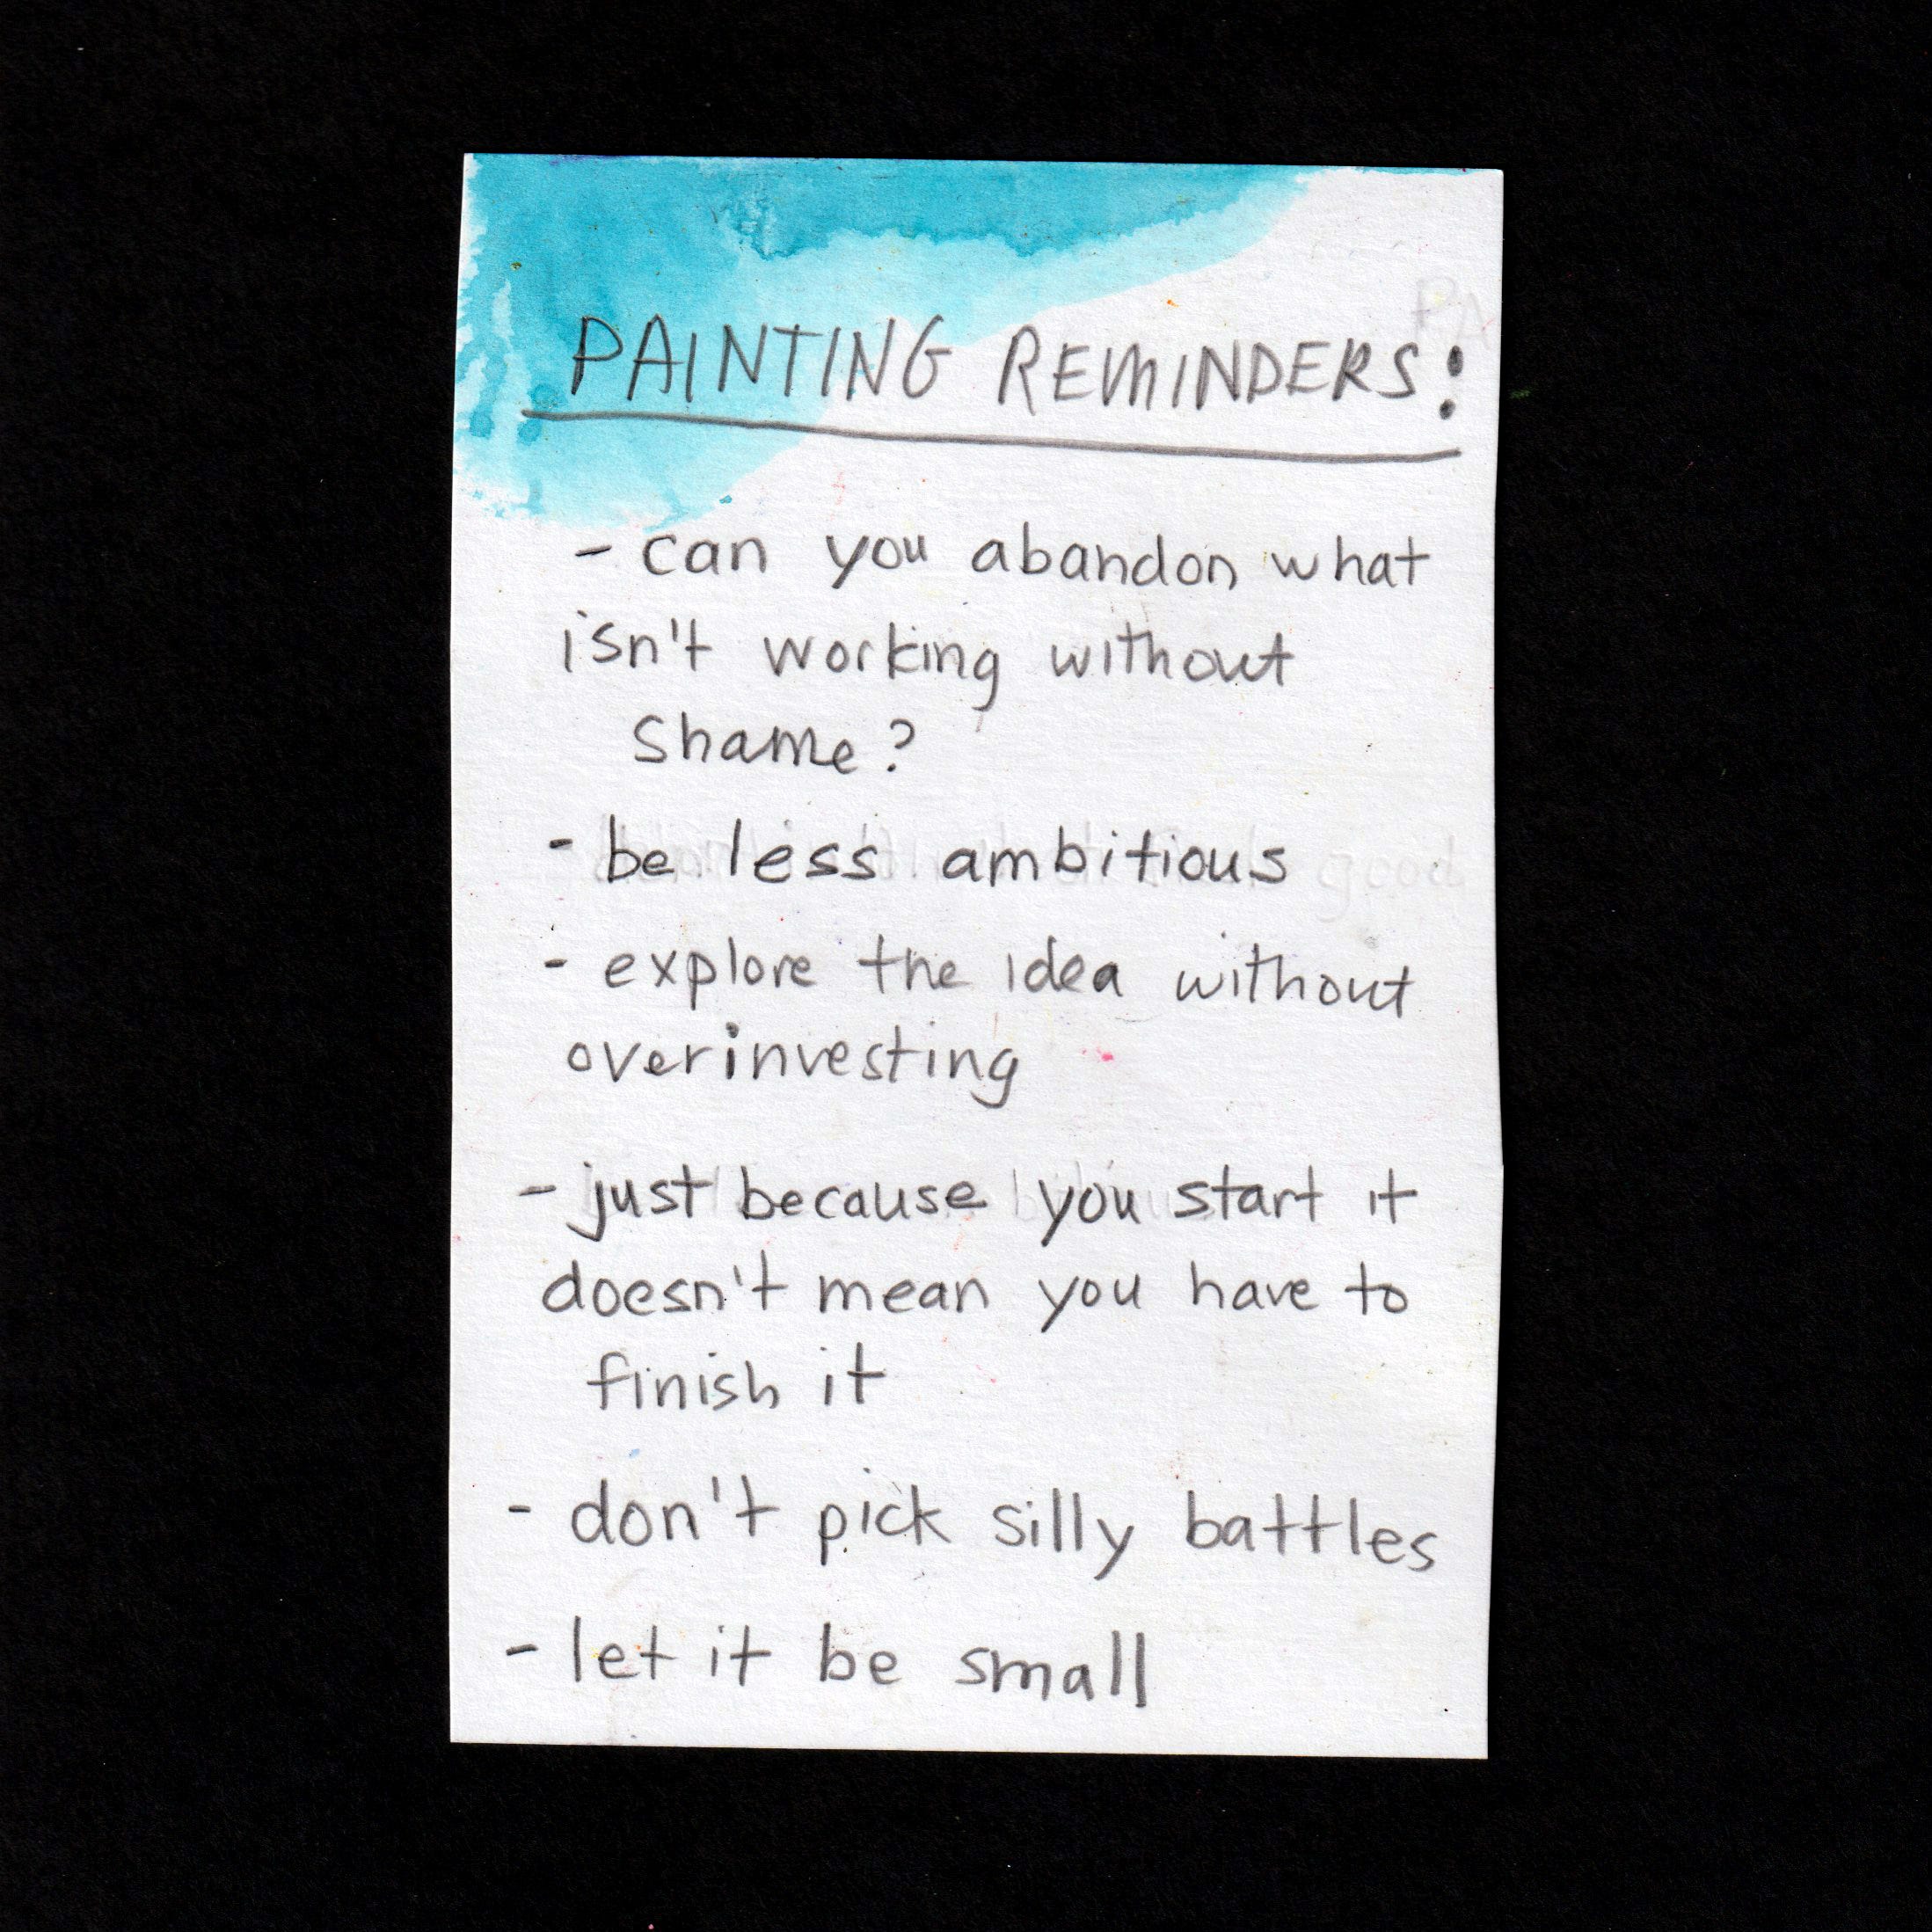 PAINTING REMINDERS:
- can you abandon what
isn't working without
shame?
- be less ambitious
- explore the idea without
overinvesting
- just because you start it
doesn't mean you have to
finish it
- don't pick silly battles
- let it be small